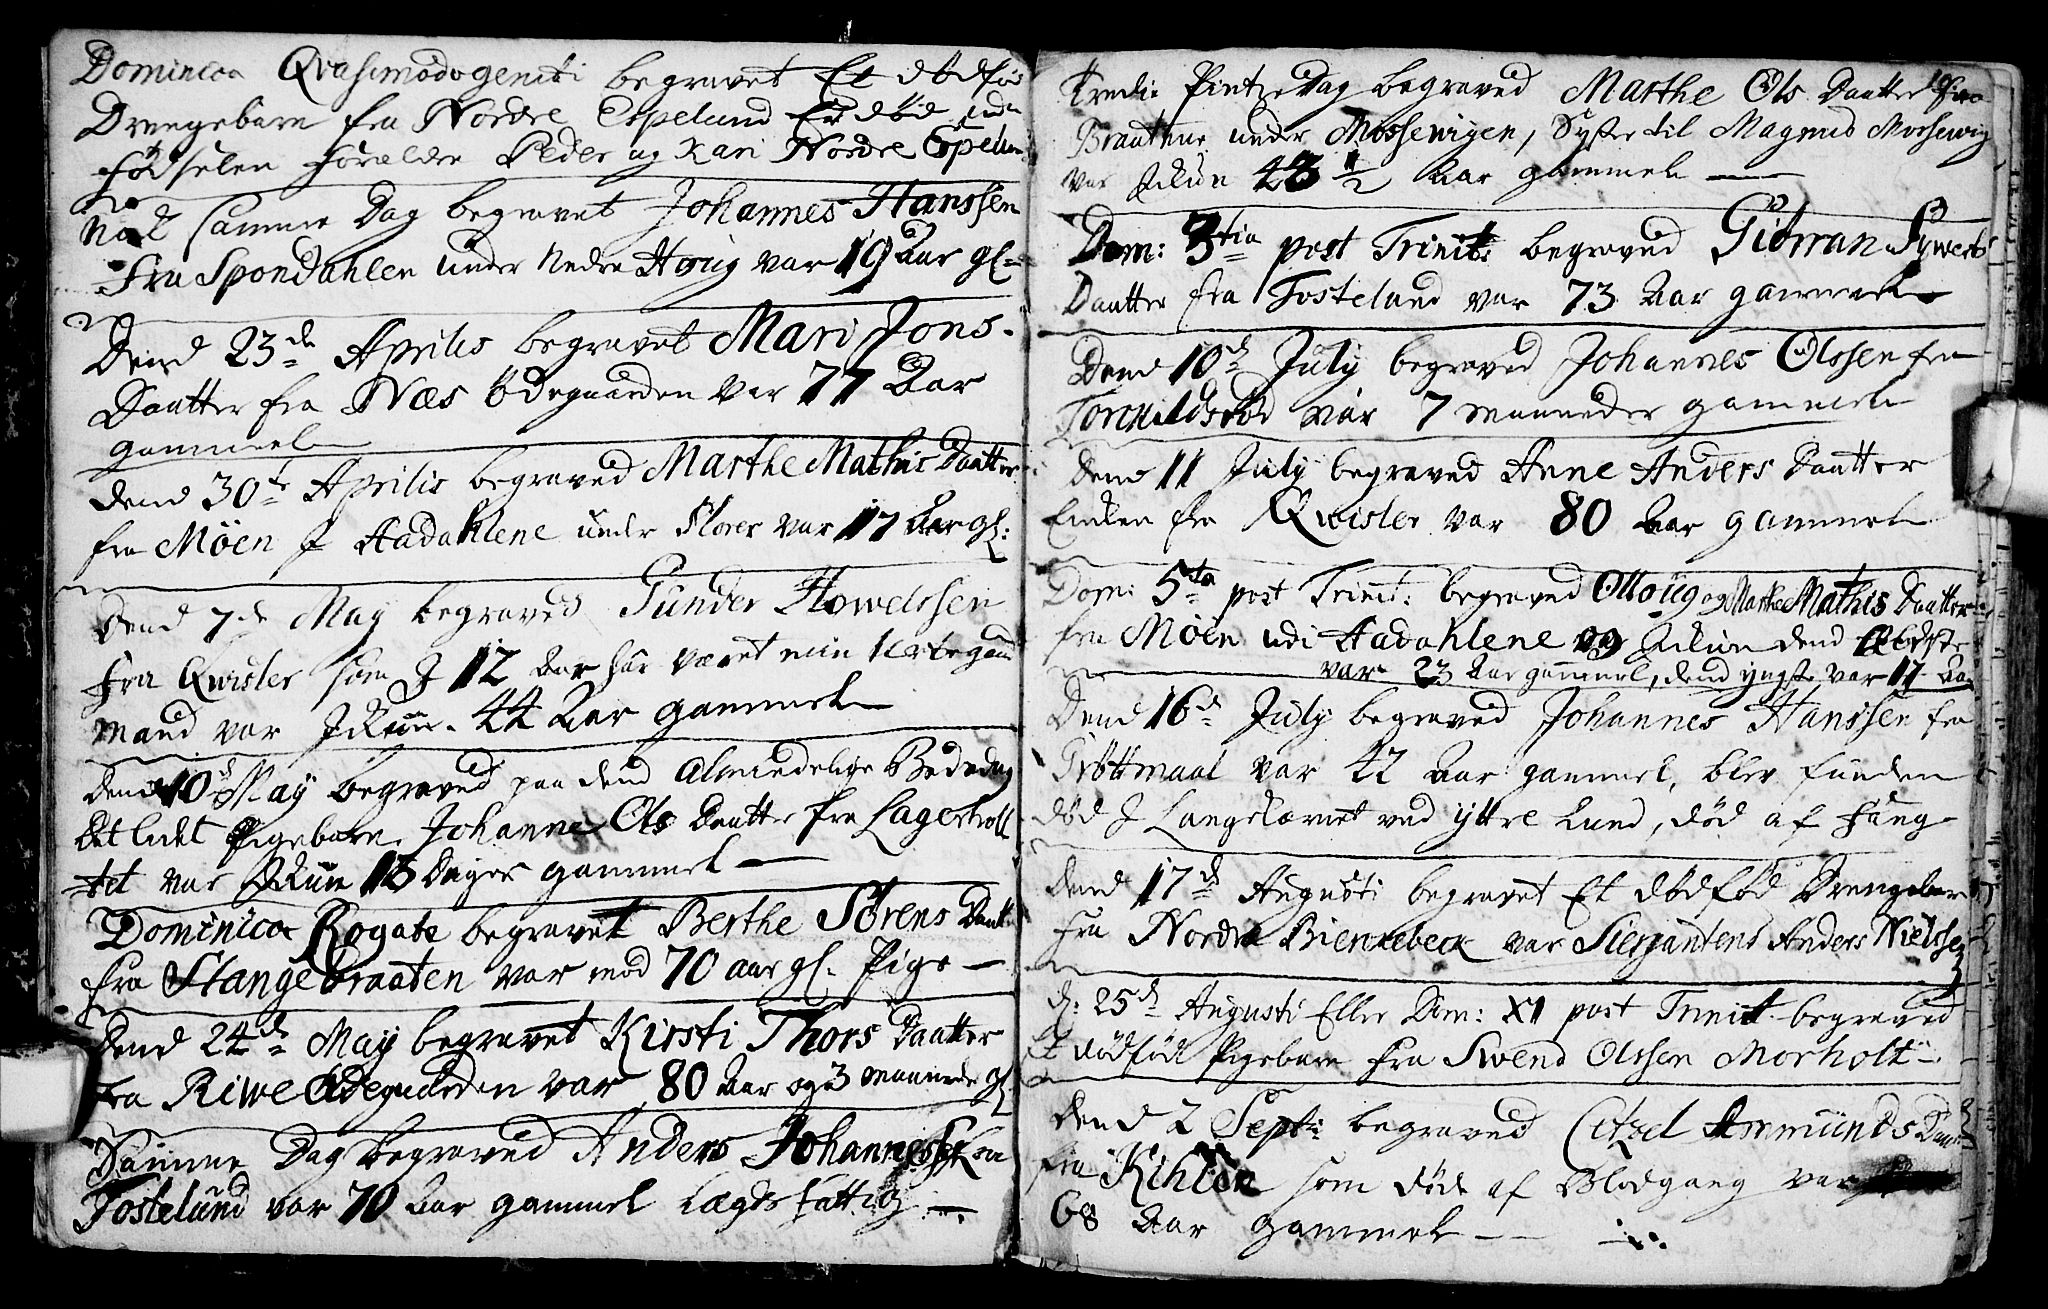 Dominica Qvasimodogeniti begravet Et dødfød
Drengebarn fra Nordre Espelund Er død udi
fødselen Forældre Peder og Kari Nordre Espelun
Nok samme Dag begravet Johannes Hanssen
Fra Spondahlen under Nedre Houg var 19 Aar gl-
Dend 23de Aprilis begravet Mari Jons-
Daatter fra Næs Ødegaarden var 77 Aar
gammel
dend 30te Aprilis begraved Marthe Mathis Daatter
fra Möen J Aadahlene under Florer var 17 Aar gl:
Dend 7de May begraved Gunder Howelssen
Fra Qwisler som J 12 Aar har været min
mand var Ickun. 44 Aar gammel
Dend 10d May begraved paa dend Almindelige Bededag
Et lidet Pigebarn Johanne Ols Daatter fra Lagerholt
tet var Ickun 13 Dager gammel
Dominica Rogate begravet Berthe Sörens Daatt
fra Stangebraaten var mod 70 aar gl. Pige
Dend 24d May begravet Kirsti Thors Daatter
fra Riwe Ødegaarden var 80 Aar og 3 maaneder gl
Samme Dag begraved Anders Johannessen fra
Tostelund var 70 Aar gammel Lægds fattig
Tredie Pintze Dag begraved Marthe Ols Daatter fra
Braathene under Mossewigen, Syster til Magnus Mossewig
var Ickun 48 1/2 Aar gammel
Dom: 3tia post Trinit: begraved Gudran Sywerts
Daatter fra Tostelund var 73 Aar gammel
Dend 10d July begraved Johannes Olssen fra
Tormildsrød var 7 maaneder gammel
Dend 11 July begraved Anne Anders Daatter
Enken fra Qwisler var 80 Aar gammel
Dom: 5ta post Trinit: begraved Ottoug og Marthe Mathis Daatter
fra Möen udi Aadahlene og Ickun dend Eldste
var 23 Aar gammel, dend yngste var 17 Aar
Dend 16d July begraved Johannes Hanssen fra
Grøttmaal var 42 Aar gammel, blev funden
død J Langetærnet ved yttre Lund, død af Fang
Dend 17d Augusti begravet Et dødfød Drengebarn
Fra Nordre Biennebeck var Sierjantens Anders Nielssen
d: 25d Augusti Eller Dom: XI post Trinit begraved
Et dødfød Pigebarn fra Swend Olssen Morholt
Dend 2 Sept: begraved Citzel Ammunds Daatt
fra Kihlen som døde af Blodgang var
68 Aar gammel